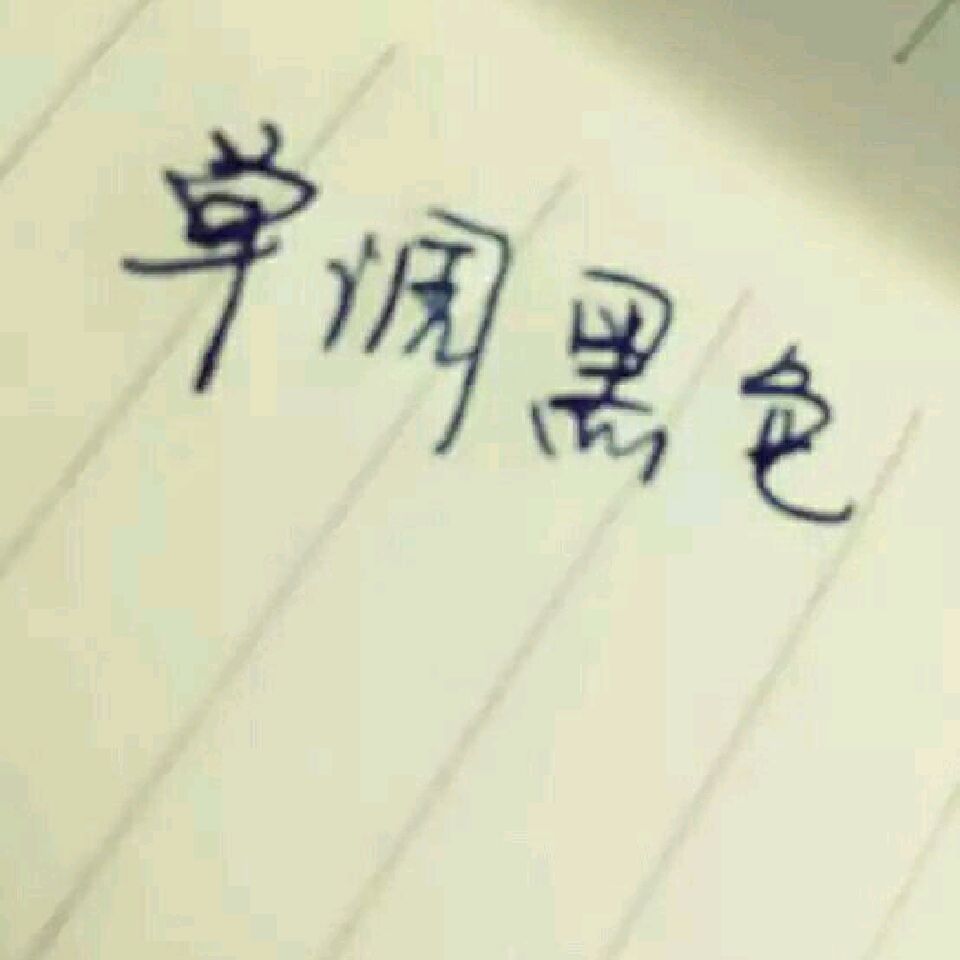 单调黑色